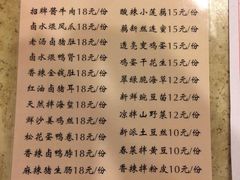 招牌酱牛肉18元/份
卤水煨凤爪18元/份
老汤卤猪肚18元/份
卤水煨鸭胃18元/份
香辣金钱肚18元/份
红油卤猪耳18元/份
天然拌海蜇18元/份
鲜沙姜鸡丝18元/份
松花荽鸭卷18元/份
香辣卤鸭脖18元/份
麻辣猪生肠18元/份
酸辣小莲藕15元/份
藕断丝连羹15元/份
透亮皮鸡蛋15元/份
鸡蛋干花生15元/份
翠绿脆海草12元/份
新鲜豌豆苗12元/份
凉拌山野菜12元/份
新派土豆丝10元/份
春菜拌黄豆10元/份
香辣拌粉皮10元/份